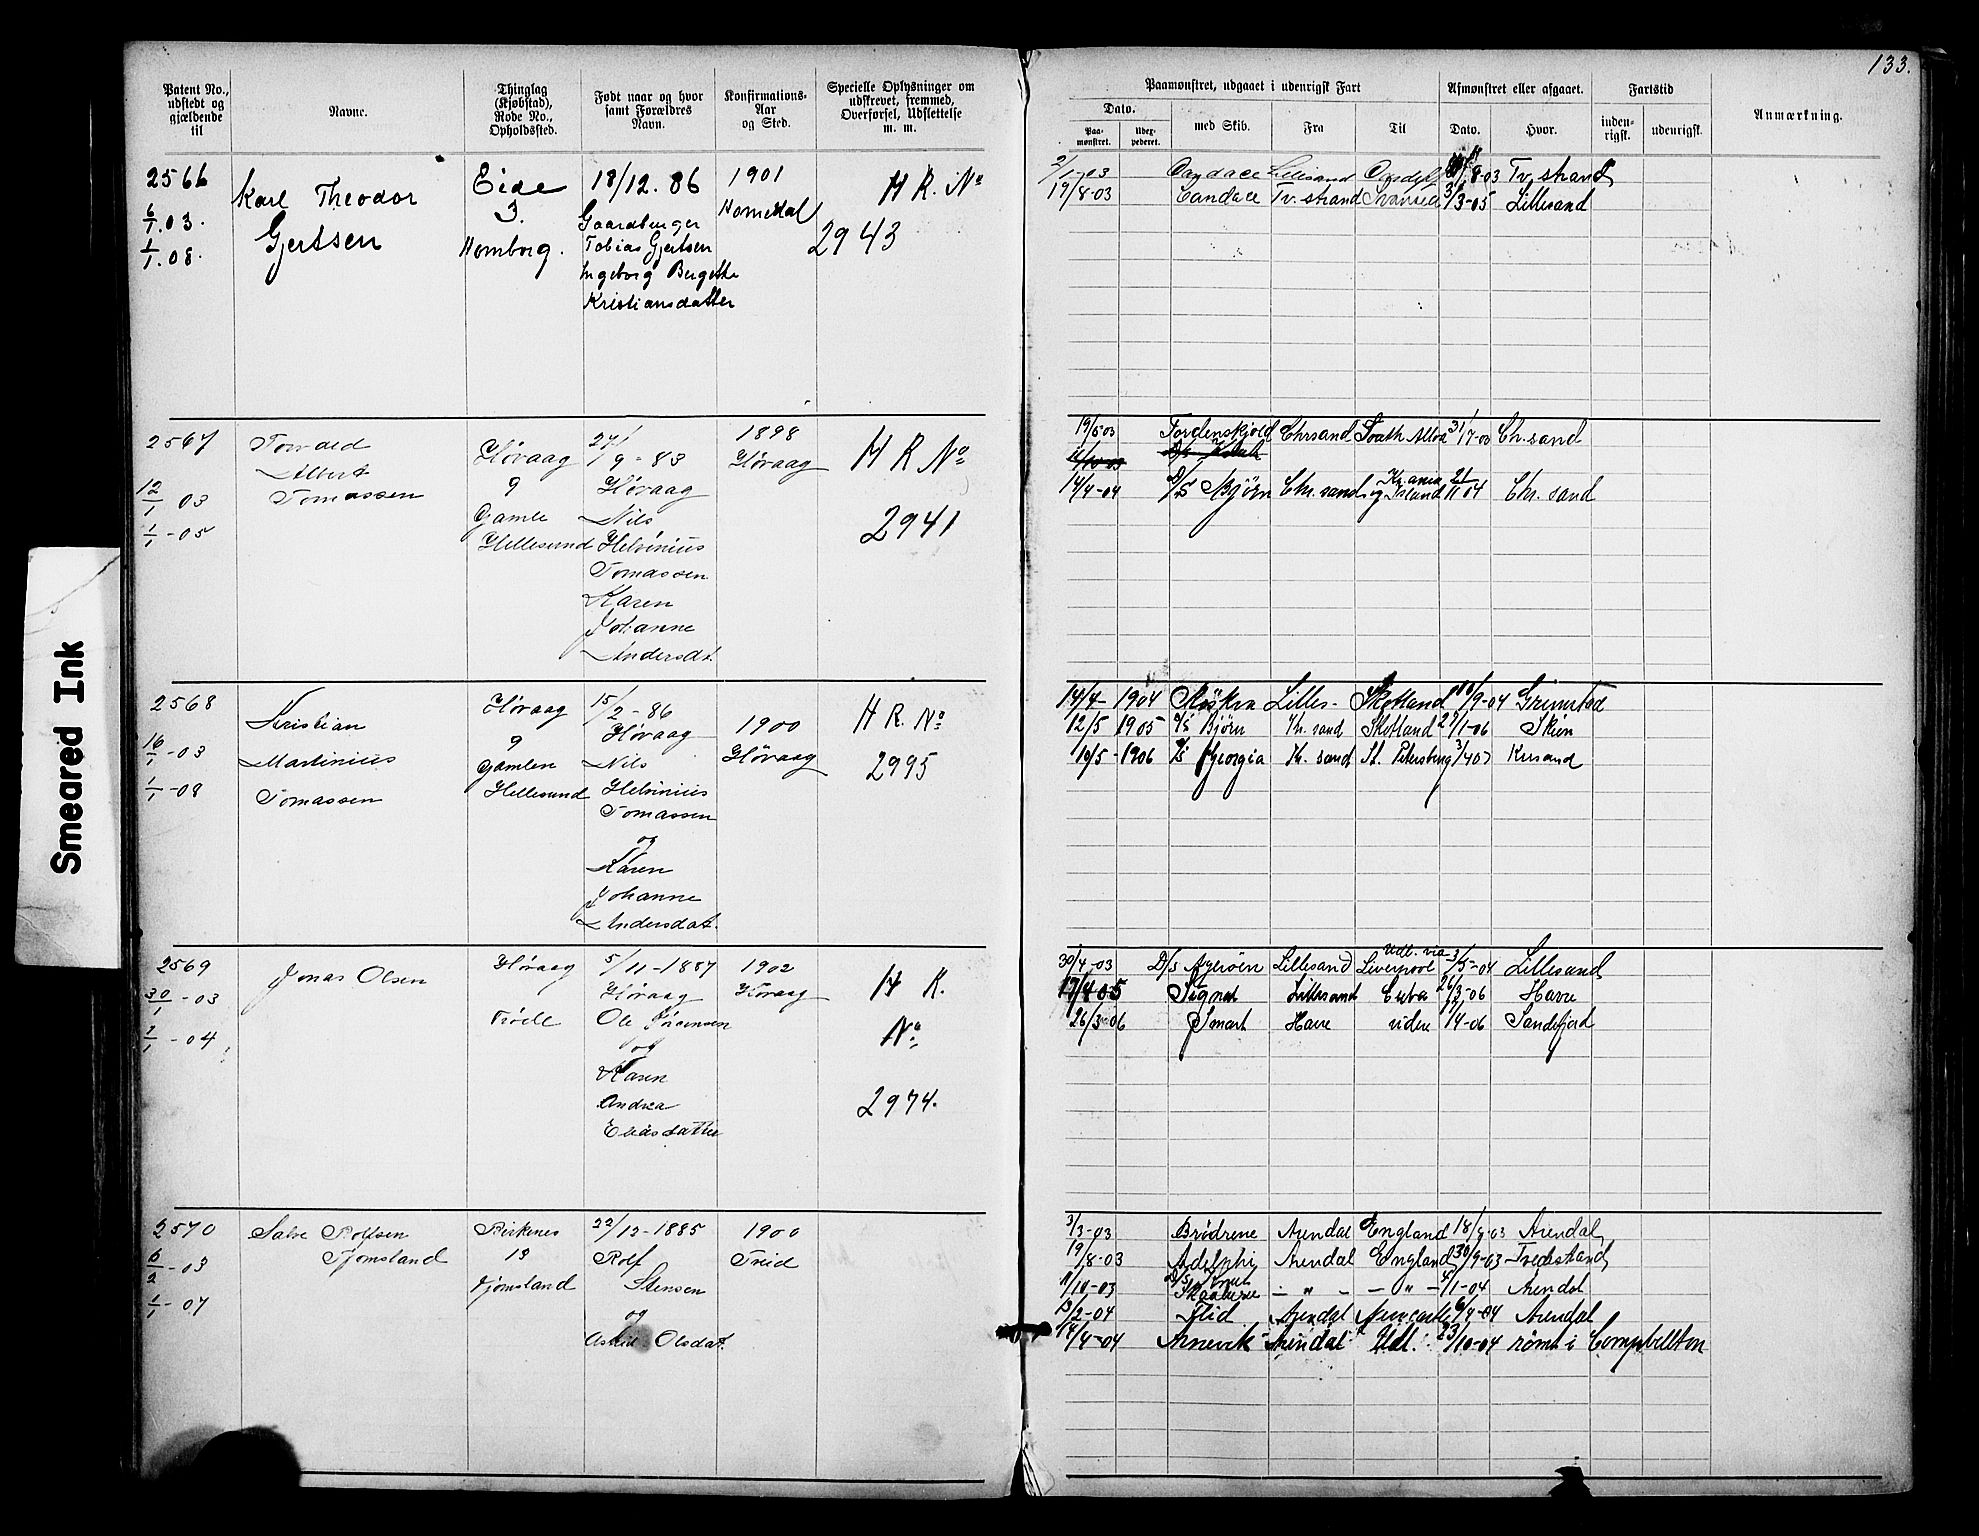 133.
Patent No., udstedt og gjældende til
Navne.
Thinglag (Kjøbstad), Rode No., Opholdssted.
Født naar og hvor samt Forældres Navn.
Konfirmations-Aar og Sted.
Specielle Oplysninger om udskrevet, fremmed, Overførsel, Udslettelse m. m.
Paamønstret, udgaaet i udenrigsk Fart
Afmønstret eller afgaaet.
Fartstid
Anmærkning.
Dato.
Paa-mønstret.
Udex-pederet.
med Skib.
Fra
Til
Dato.
Hvor.
inden-rigsk.
udenrigsk.
2566
6/1.03.
1/1.08.
Karl Theodor
Gjertsen
Eide
3.
Homborg.
18/12.86
Gaardbruger
Tobias Gjertsen
Ingeborg Bergette
Kristiansdatter
1901
Homedal
H R. No
2943
2/1-03 Candace Lillesand 8-03 Tv.strand
19/8-03 Candace Tv.strand Svansea 3/3-05 Lillesand
2567
12/1 03
1/1-05
Torvald
Albert
Tomassen
Høvaag
9
Gamle
Hellesund
27/9-83
Høvaag
Nils
Helvinius
Tomassen
Karen
Johanne
Andersdt.
1898
Høvaag
H R No
2941
19/5-03 Tordenskjold Chrsand South Alloa 31/7-03 Ch.sand
14/4-04 D/S Bjørn Chr.sand Kr.ania og Island 21/11 04 Chr. sand
2568
16/1-03
1/1-08
Kristian
Martinius
Tomassen
Høvaag
9
Gamlen
Hellesund
15/2-86
Høvaag
Nils
Helvinius
Tomassen
og
Karen
Johanne
Andersdat.
1900
Høvaag
H R. No
2995
14/4-1904 Lilles- Skotland 10/9-04 Grimstad
12/5 1905 D/S Bjørn Kr. sand Skotland 29/1-06 Skien
19/5-1906 D/S Georgia Kr. sand St. Petersburg 3/4 07 Krsand
2569
30/1-03
1/1-04
Jonas Olsen
Høvaag
Trøe
5/11-1887
Høvaag
Ole Jörgensen
og
Karen
Andrea
Eliasdatter
1902
Høvaag
H R.
No
2974.
30/4-03 D/S Agerøen Lillesand Udl. via Liverpool 3/5-04 Lillesand
17/4 05 Signal Lillesand Cuba 26/3-06 Havre
26/3-06 Smart Havre videre -06 Sandefjord
2570
6/2-03
1/1-07
Salve Rolfsen
Tjomsland
Birkenes
13
Tjomsland
22/12-1885
Rolf
Stensen
og
Olsdat.
1900
Treid
3/3-03 Brødrene Arendal England 18/8-03 Arendal
19/8-03 Adelphi Arendal England 30/9-03 Tvedestrand
11/10-03 D/S - " - - " - 4/1-04 Arendal
13/2-04 Flid Arendal Newcastle 6/4-04 Arendal
14/4-04 Annevik Arendal Udl. 23/10-04 rømt i Campbellton
Smeared Ink